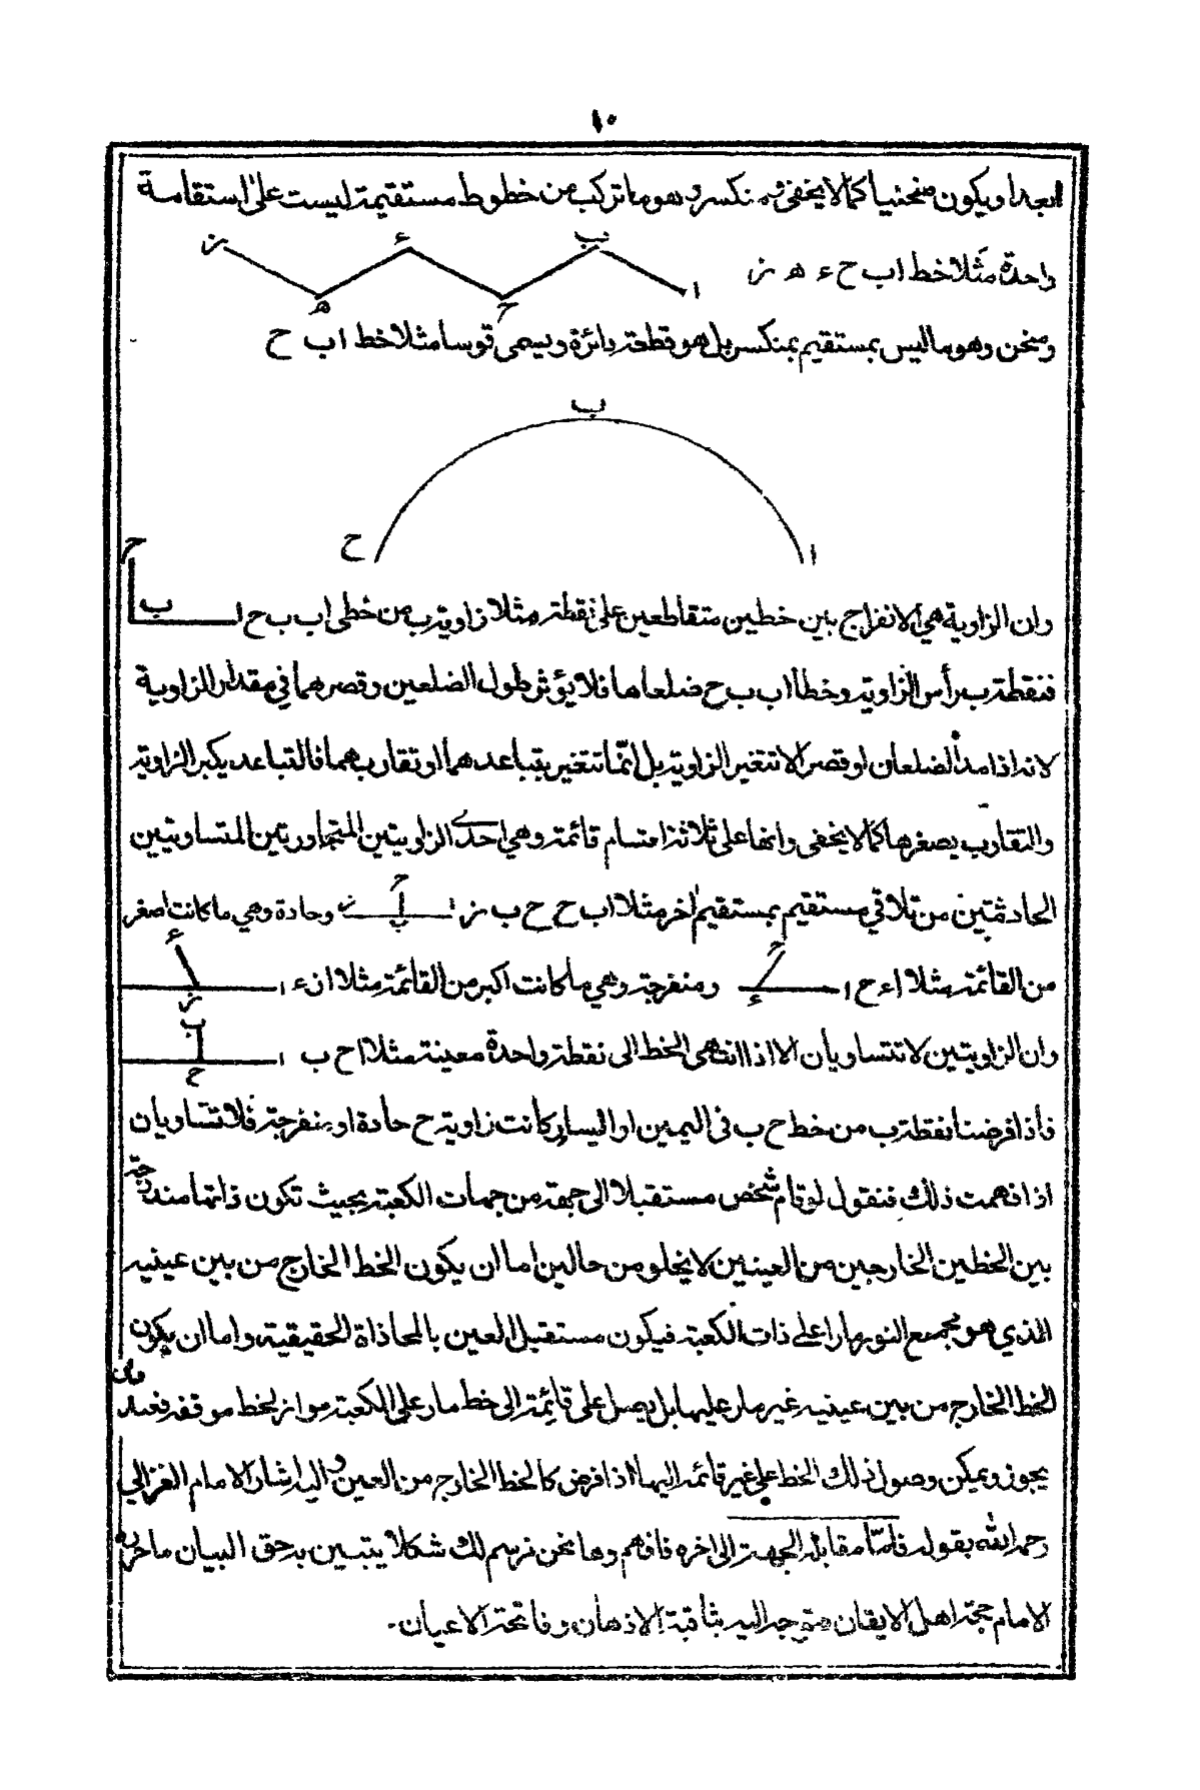 ١٠
ابعد او يكون منحنيا كما لا يخفى ثم منكسر وهو ما تركب من خطوط مستقيمة ليست على استقامة
ز ء ب
واحدة مثلا خط ا ب ح ء ه ز
ه ح ا
ومنحن وهو ما ليس بمستقيم بمنكسر بل هو قطعة دائرة ويسمى قوسا مثلا خط ا ب ح
ب
ح ا
ح
وان الزاوية هي الانفراج بين خطين متقاطعين على نقطة مثلا زاوية ب من خطى اب ب ح ا ب
فنقطة ب رأس الزاوية وخطا اب ب ح ضلعاها فلا يؤثر طول الضلعين وقصرهما في مقدار الزاوية
لانه اذا مد الضلعان او قصر الا تتغير الزاوية بل انما تتغير بتباعدهما او تقاربهما فالتباعد يكبر الزاوية
والتقارب يصغرها كما لا يخفى وانها على ثلاثة اقسام قائمة وهي احدى الزاويتين المتجاورتين المتساويتين
الحادثتين من تلاقي مستقيم بمستقيم اخر مثلا اب ح ح ب ز ا ح ب ز وحادة وهي ما كانت اصغر
من القائمة مثلا ا ء ح ا ح ء ومنفرجة وهي ما كانت اكبر من القائمة مثلا ا ز ء ا ء ز
وان الزاويتين لا تتساويان الا اذا انتهى الخط الى نقطة واحدة معينة مثلا ا ح ب ا ب ح
فاذا فرضنا نقطة ب من خط ح ب في اليمين او اليسار كانت زاوية ح حادة او منفرجة فلا تتساويان
اذا فهمت ذلك فنقول لو قام شخص مستقبلا الى جهة من جهات الكعبة بحيث تكون ذاتها مندرجة
بين الخطين الخارجين من العينين لا يخلو من حالين اما ان يكون الخط الخارج من بين عينيه
الذي هو مجمع النور مارا على ذات الكعبة فيكون مستقبل العين بالمحاذاة الحقيقية واما ان يكون
الخط الخارج من بين عينيه غير مار عليها بل يصل على قائمة الى خط مار على الكعبة مواز لخط موقفه فعند
يجوز ويمكن وصول ذلك الخط على غير قائمة اليها اذا فرض كالخط الخارج من العين واليه اشار الامام الغزالي
رحمه الله بقوله فاما مقابلة الجهة الى اخره فافهم وها نحن نرسم لك شكلا يتبين به حق البيان ما حرره
الامام حجة اهل الايقان متوجه اليه بثاقبة الاذهان وفاتحة الاعيان.